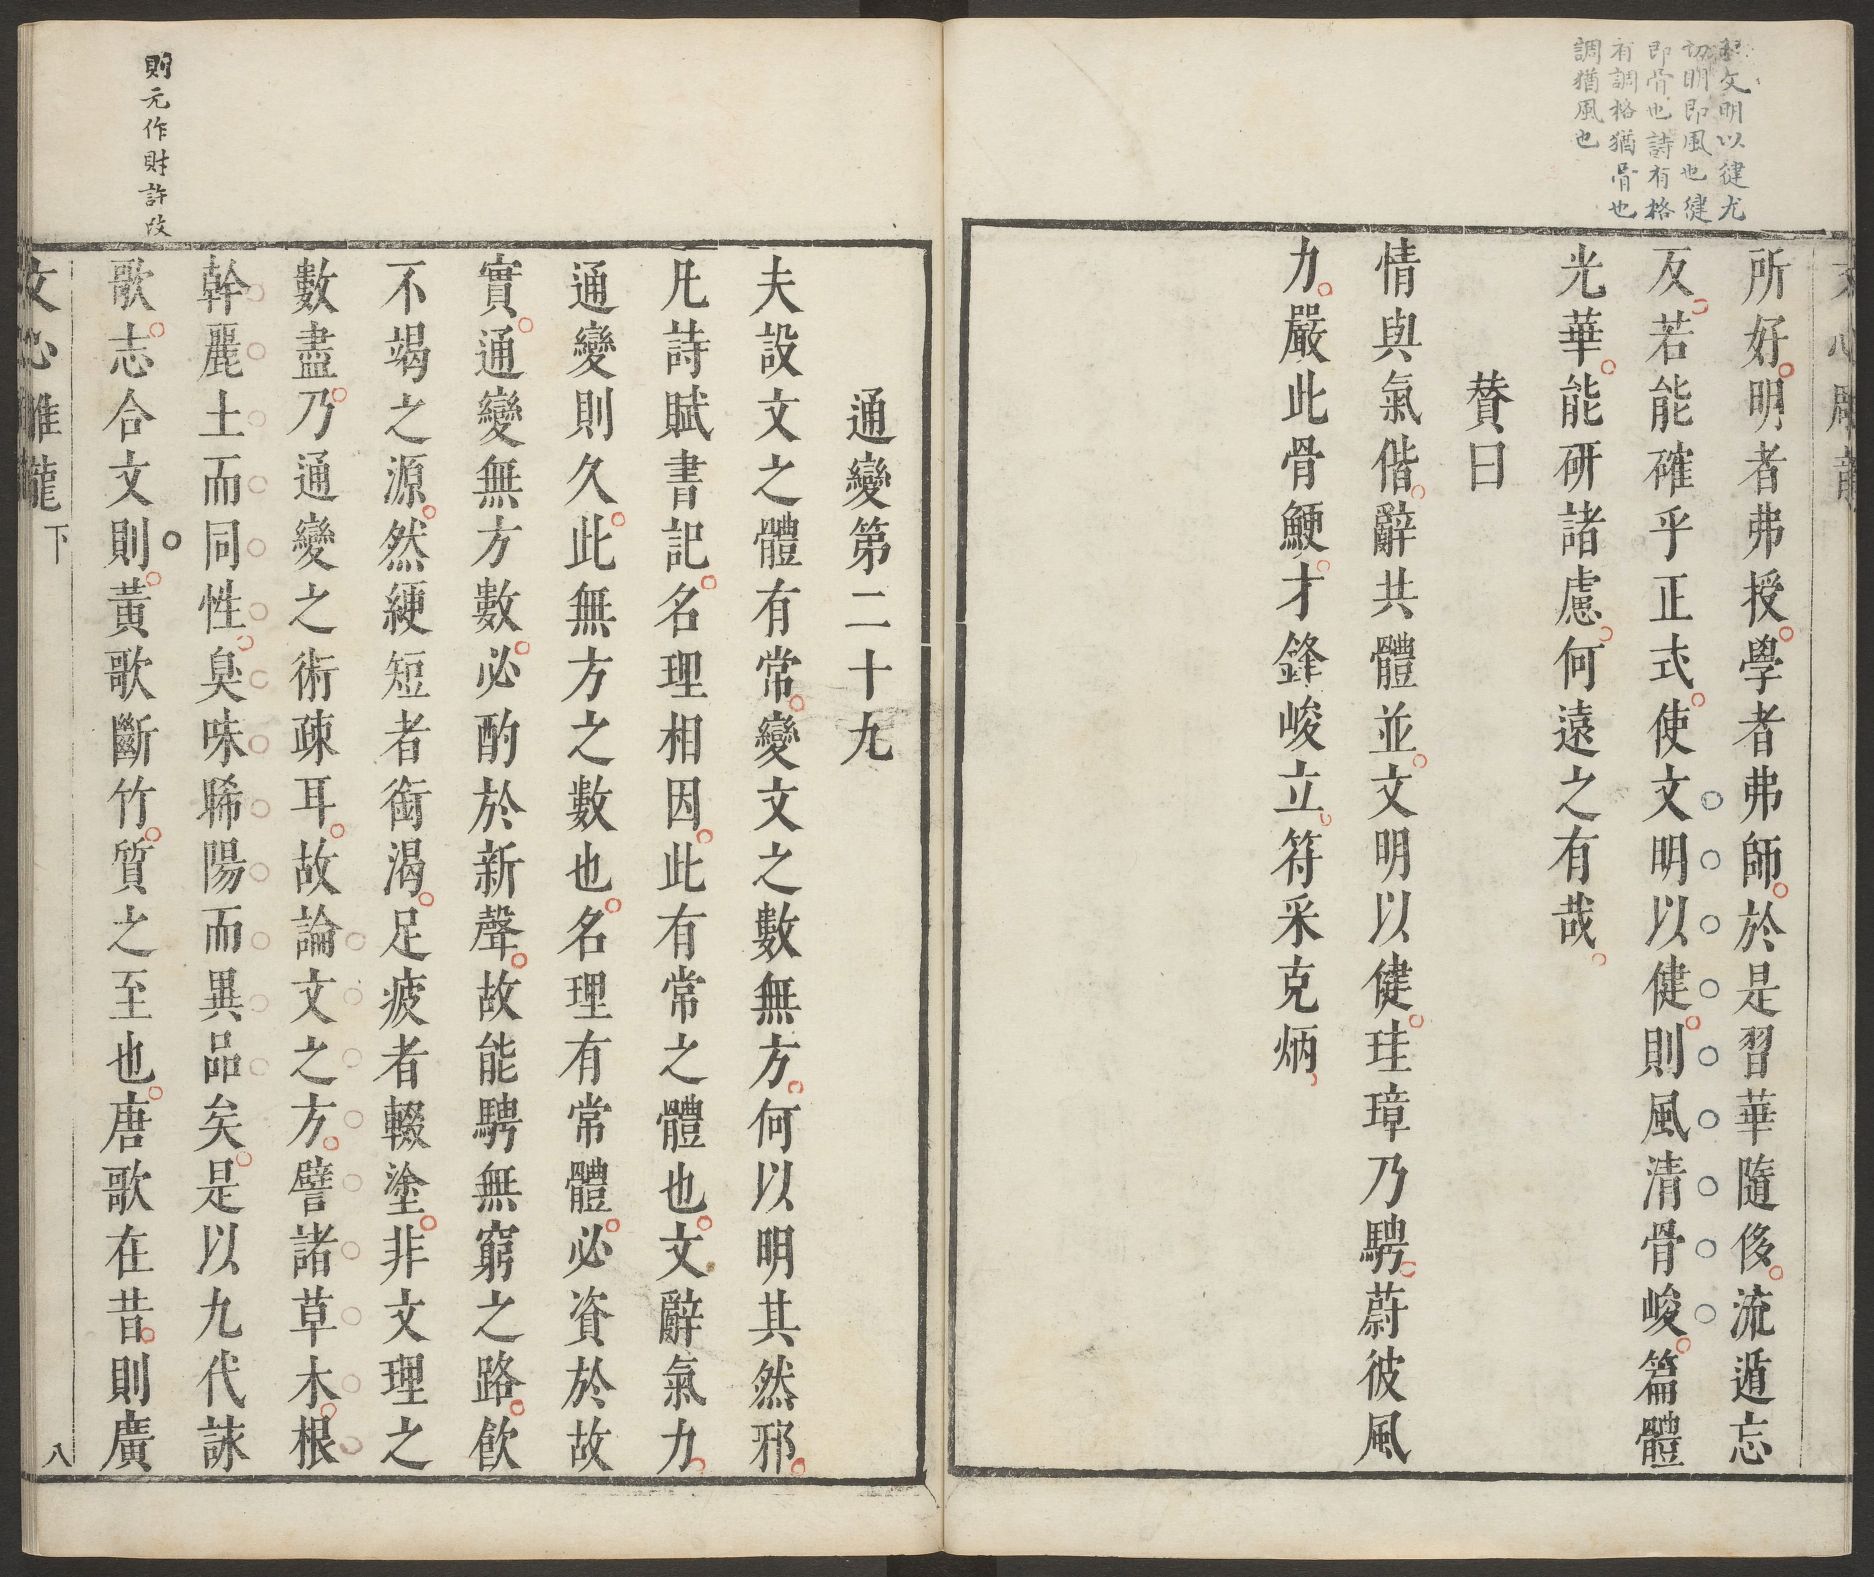 文明以健尤
切明即風也健
即骨也詩有格
有調格猶骨也
調猶風也
所好明者弗授學者弗師於是習華隨侈流遁忘
反若能確乎正式使文明以健則風清骨峻篇體
光華能研諸慮何遠之有哉
贊曰
情與氣偕辭共體並文明以健珪璋乃騁蔚彼風
力嚴此骨鯁才鋒峻立符采克炳
通變第二十九
夫設文之體有常變文之數無方何以明其然邪
凡詩賦書記名理相因此有常之體也文辭氣力
通變則久此無方之數也名理有常體必資於故
實通變無方數必酌於新聲故能騁無窮之路飲
不竭之源然綆短者銜渴足疲者輟塗非文理之
數盡乃通變之術疎耳故論文之方譬諸草木根
幹麗土而同性臭味晞陽而異品矣是以九代詠
歌志合文則黃歌斷竹質之至也唐歌在昔則廣
則元作財許改
文心雕龍 下
八